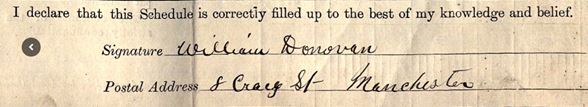 I declare that this Schedule is correctly filled up to the best of my knowledge and belief.
Signature William Donovan
Postal Address 8 Craig St Manchester